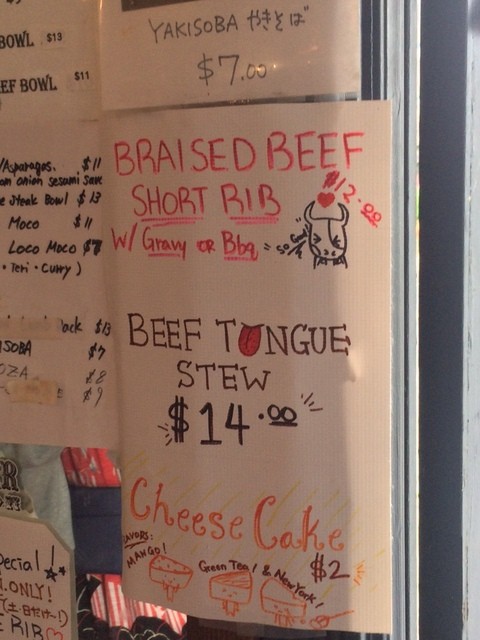 YAKISOBA やきそば
$7.00
BOWL $13
BOWL $11
/Asparagus. $11
onion sesami
Steak Bowl $13
Moco $11
Loco Moco $7
Teri・Curry)
$13
SOBA $7
OZA $8
$9
BRAISED BEEF
SHORT RIB
$12.00
W/ Gravy OR Bbq
So Good
BEEF TONGUE
STEW
$14.00
Cheese Cake
$2
FLAVORS:
MANGO!
Green Tea! & New York!
pecial!
ONLY!
RIB